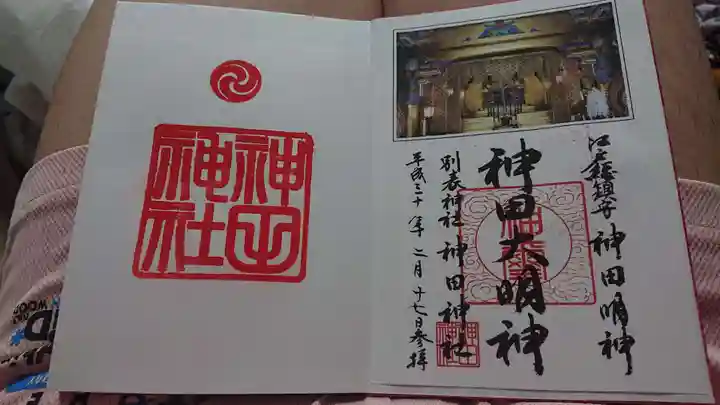 江戸総鎮守 神田明神
神田大明神
別表神社 神田神社
平成三十年二月十七日参拝
神田
神社